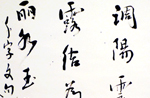 調陽雲
露結為
丽水玉
千字文句